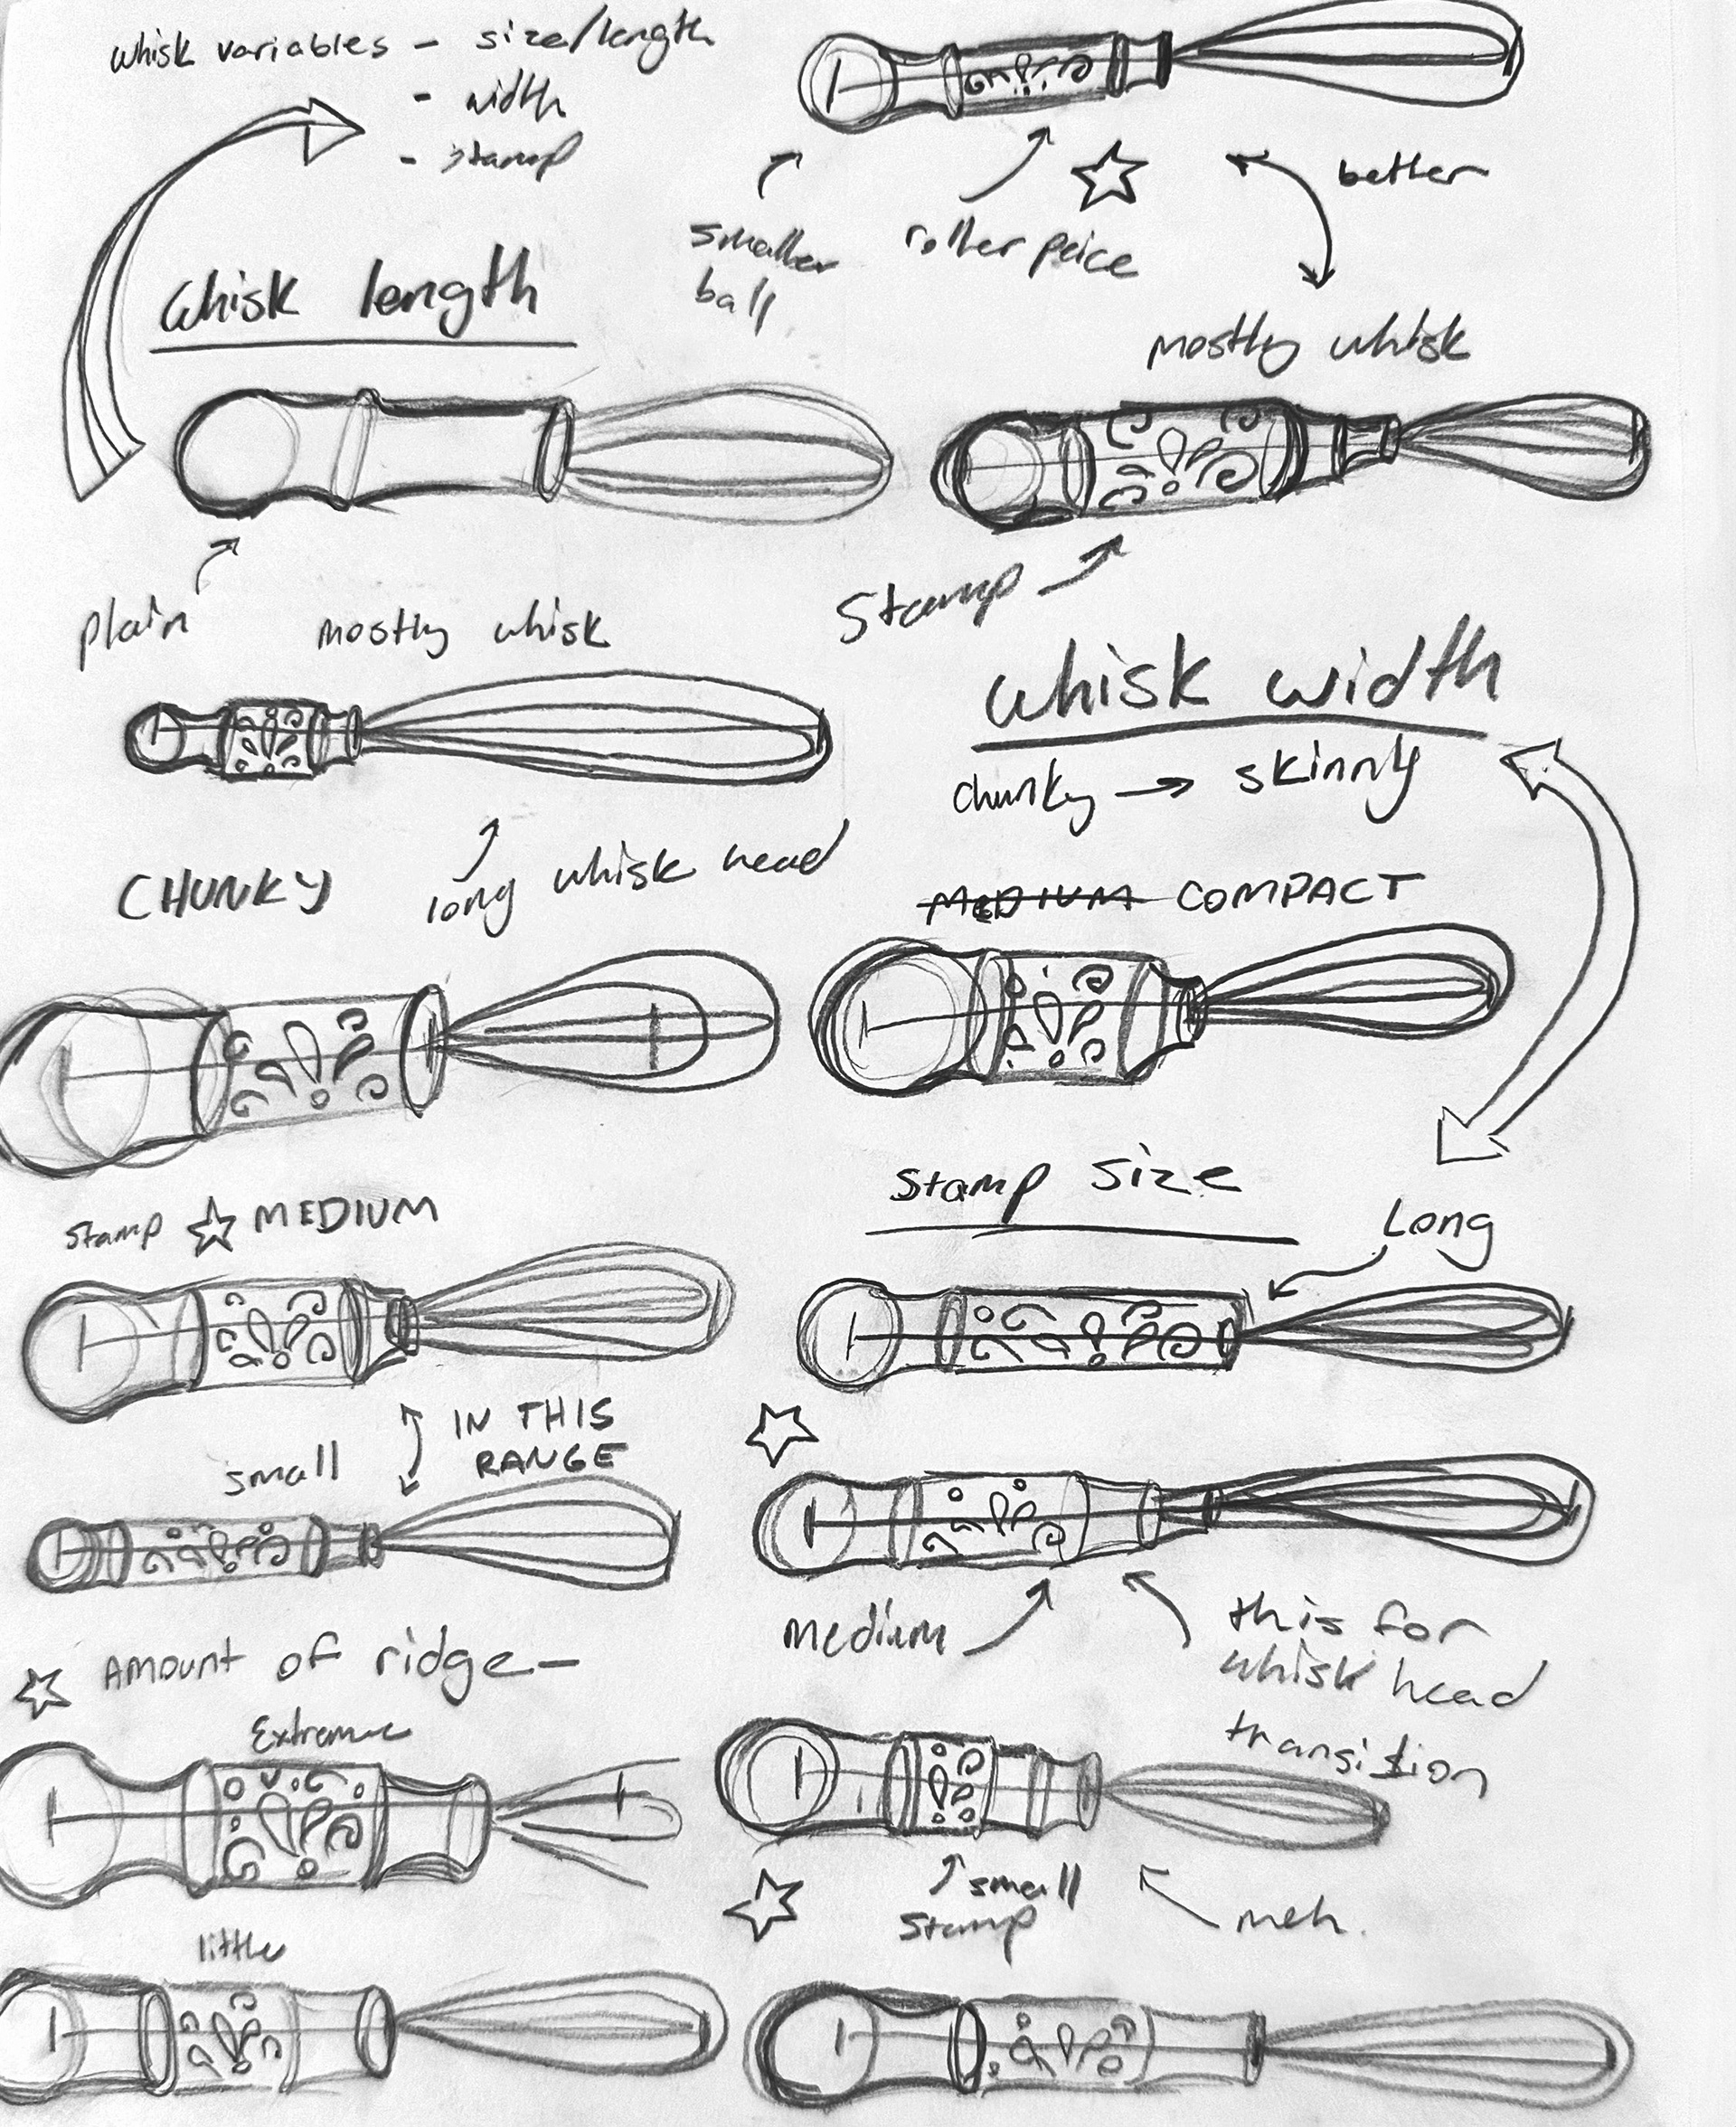 whisk variables - size/length
- width
- stamp
better
smaller
ball
roller peice
whisk length
mostly whisk
plain
mostly whisk
stamp
whisk width
chunky → skinny
long whisk head
CHUNKY
MEDIUM COMPACT
stamp size
Long
stamp ☆ MEDIUM
IN THIS
RANGE
small
medium
this for
whisk head
transition
☆ AMOUNT of ridge-
Extreme
small
stamp
meh.
little